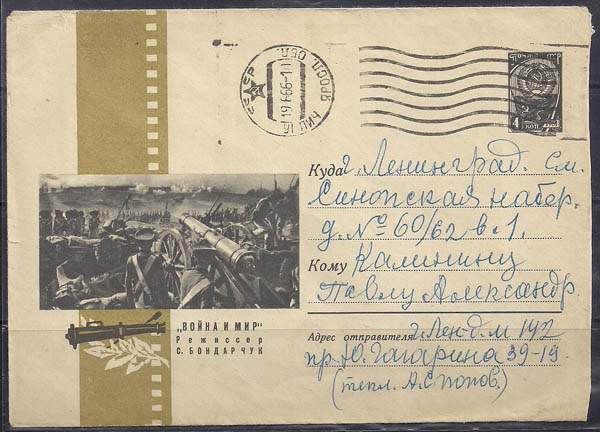 СССР
ЯРОСЛ. ОБЛ.
19.6.66-11
4
КОП
Куда г. Ленинград. См.
Синопская набер.
д. № 60/62 в-1,
Кому Калининц
Павлу Александр.
Адрес отправителя г. Лен-д-м 142
пр. Ю. Гагарина 39-19.
(тепл. А.С Попов.)
„ВОЙНА И МИР“
Режиссер
С. БОНДАРЧУК